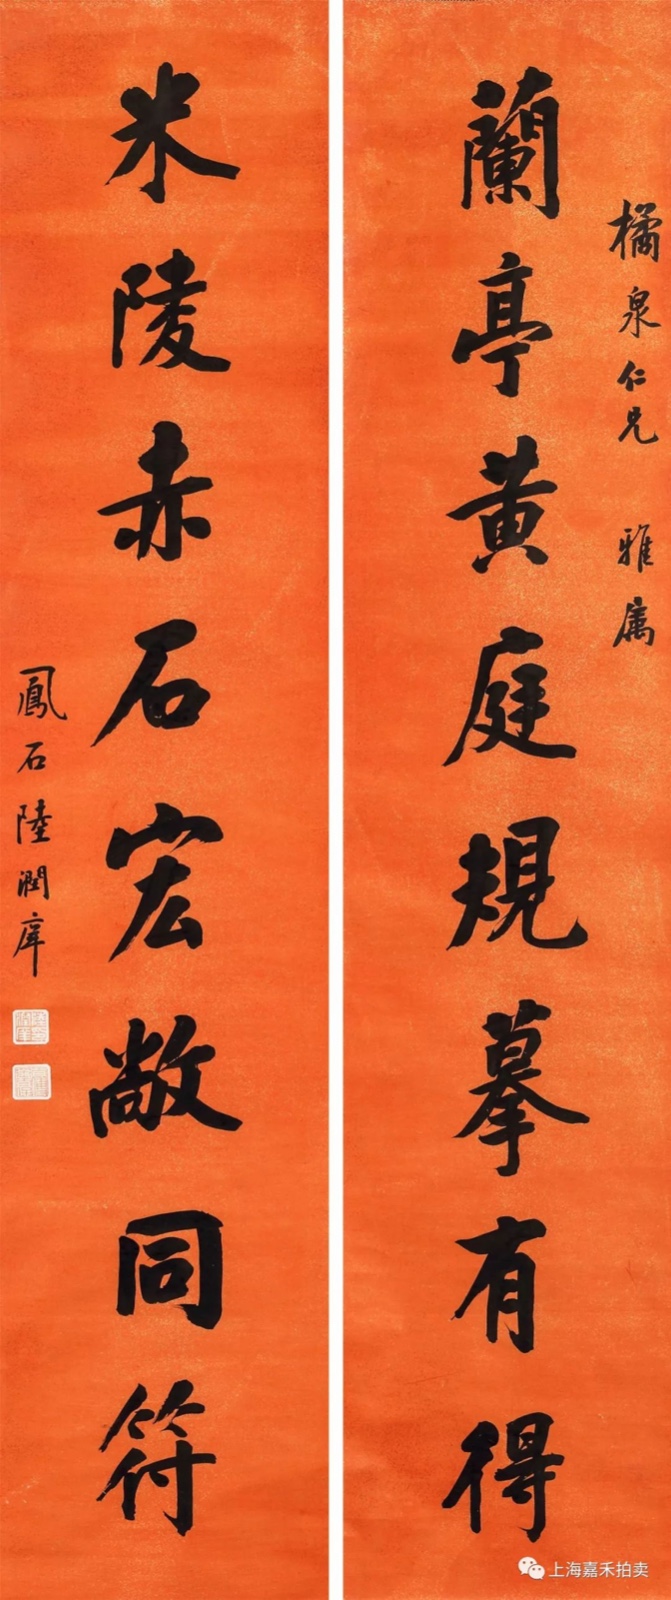 橘泉仁兄 雅属
蘭亭黄庭規摹有得
米陵赤石宏敞同符
鳳石陸潤庠
上海嘉禾拍卖